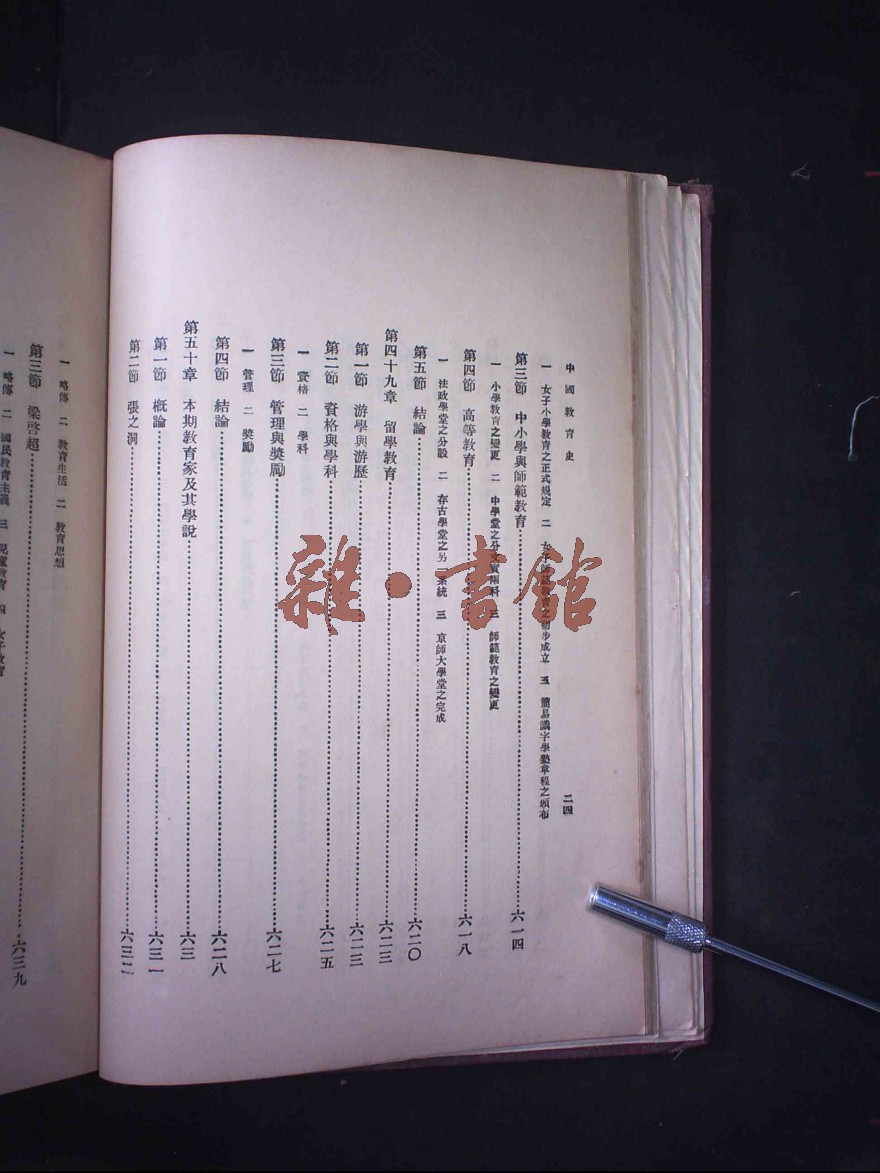 中國教育史
二四
一 女子小學教育之正式規定 二 女子師範教育之初步成立 三 簡易識字學塾章程之頒布
第三節 中小學與師範教育 六一四
一 小學教育之變更 二 中學堂之分文實兩科 三 師範教育之變更
第四節 高等教育 六一八
一 法政學堂之分設 二 存古學堂之另一系統 三 京師大學堂之完成
第五節 結論 六二〇
第四十九章 留學教育 六二三
第一節 游學與游歷 六二三
第二節 資格與學科 六二五
一 資格 二 學科
第三節 管理與獎勵 六二七
一 管理 二 獎勵
第四節 結論 六二八
第五十章 本期教育家及其學說 六三一
第一節 概論 六三一
第二節 張之洞 六三二
一 略傳 二 教育生活 三 教育思想
第三節 梁啓超 六三九
一 略傳 二 國民教育主義 三 兒童教育 四 女子教育
雜·書館